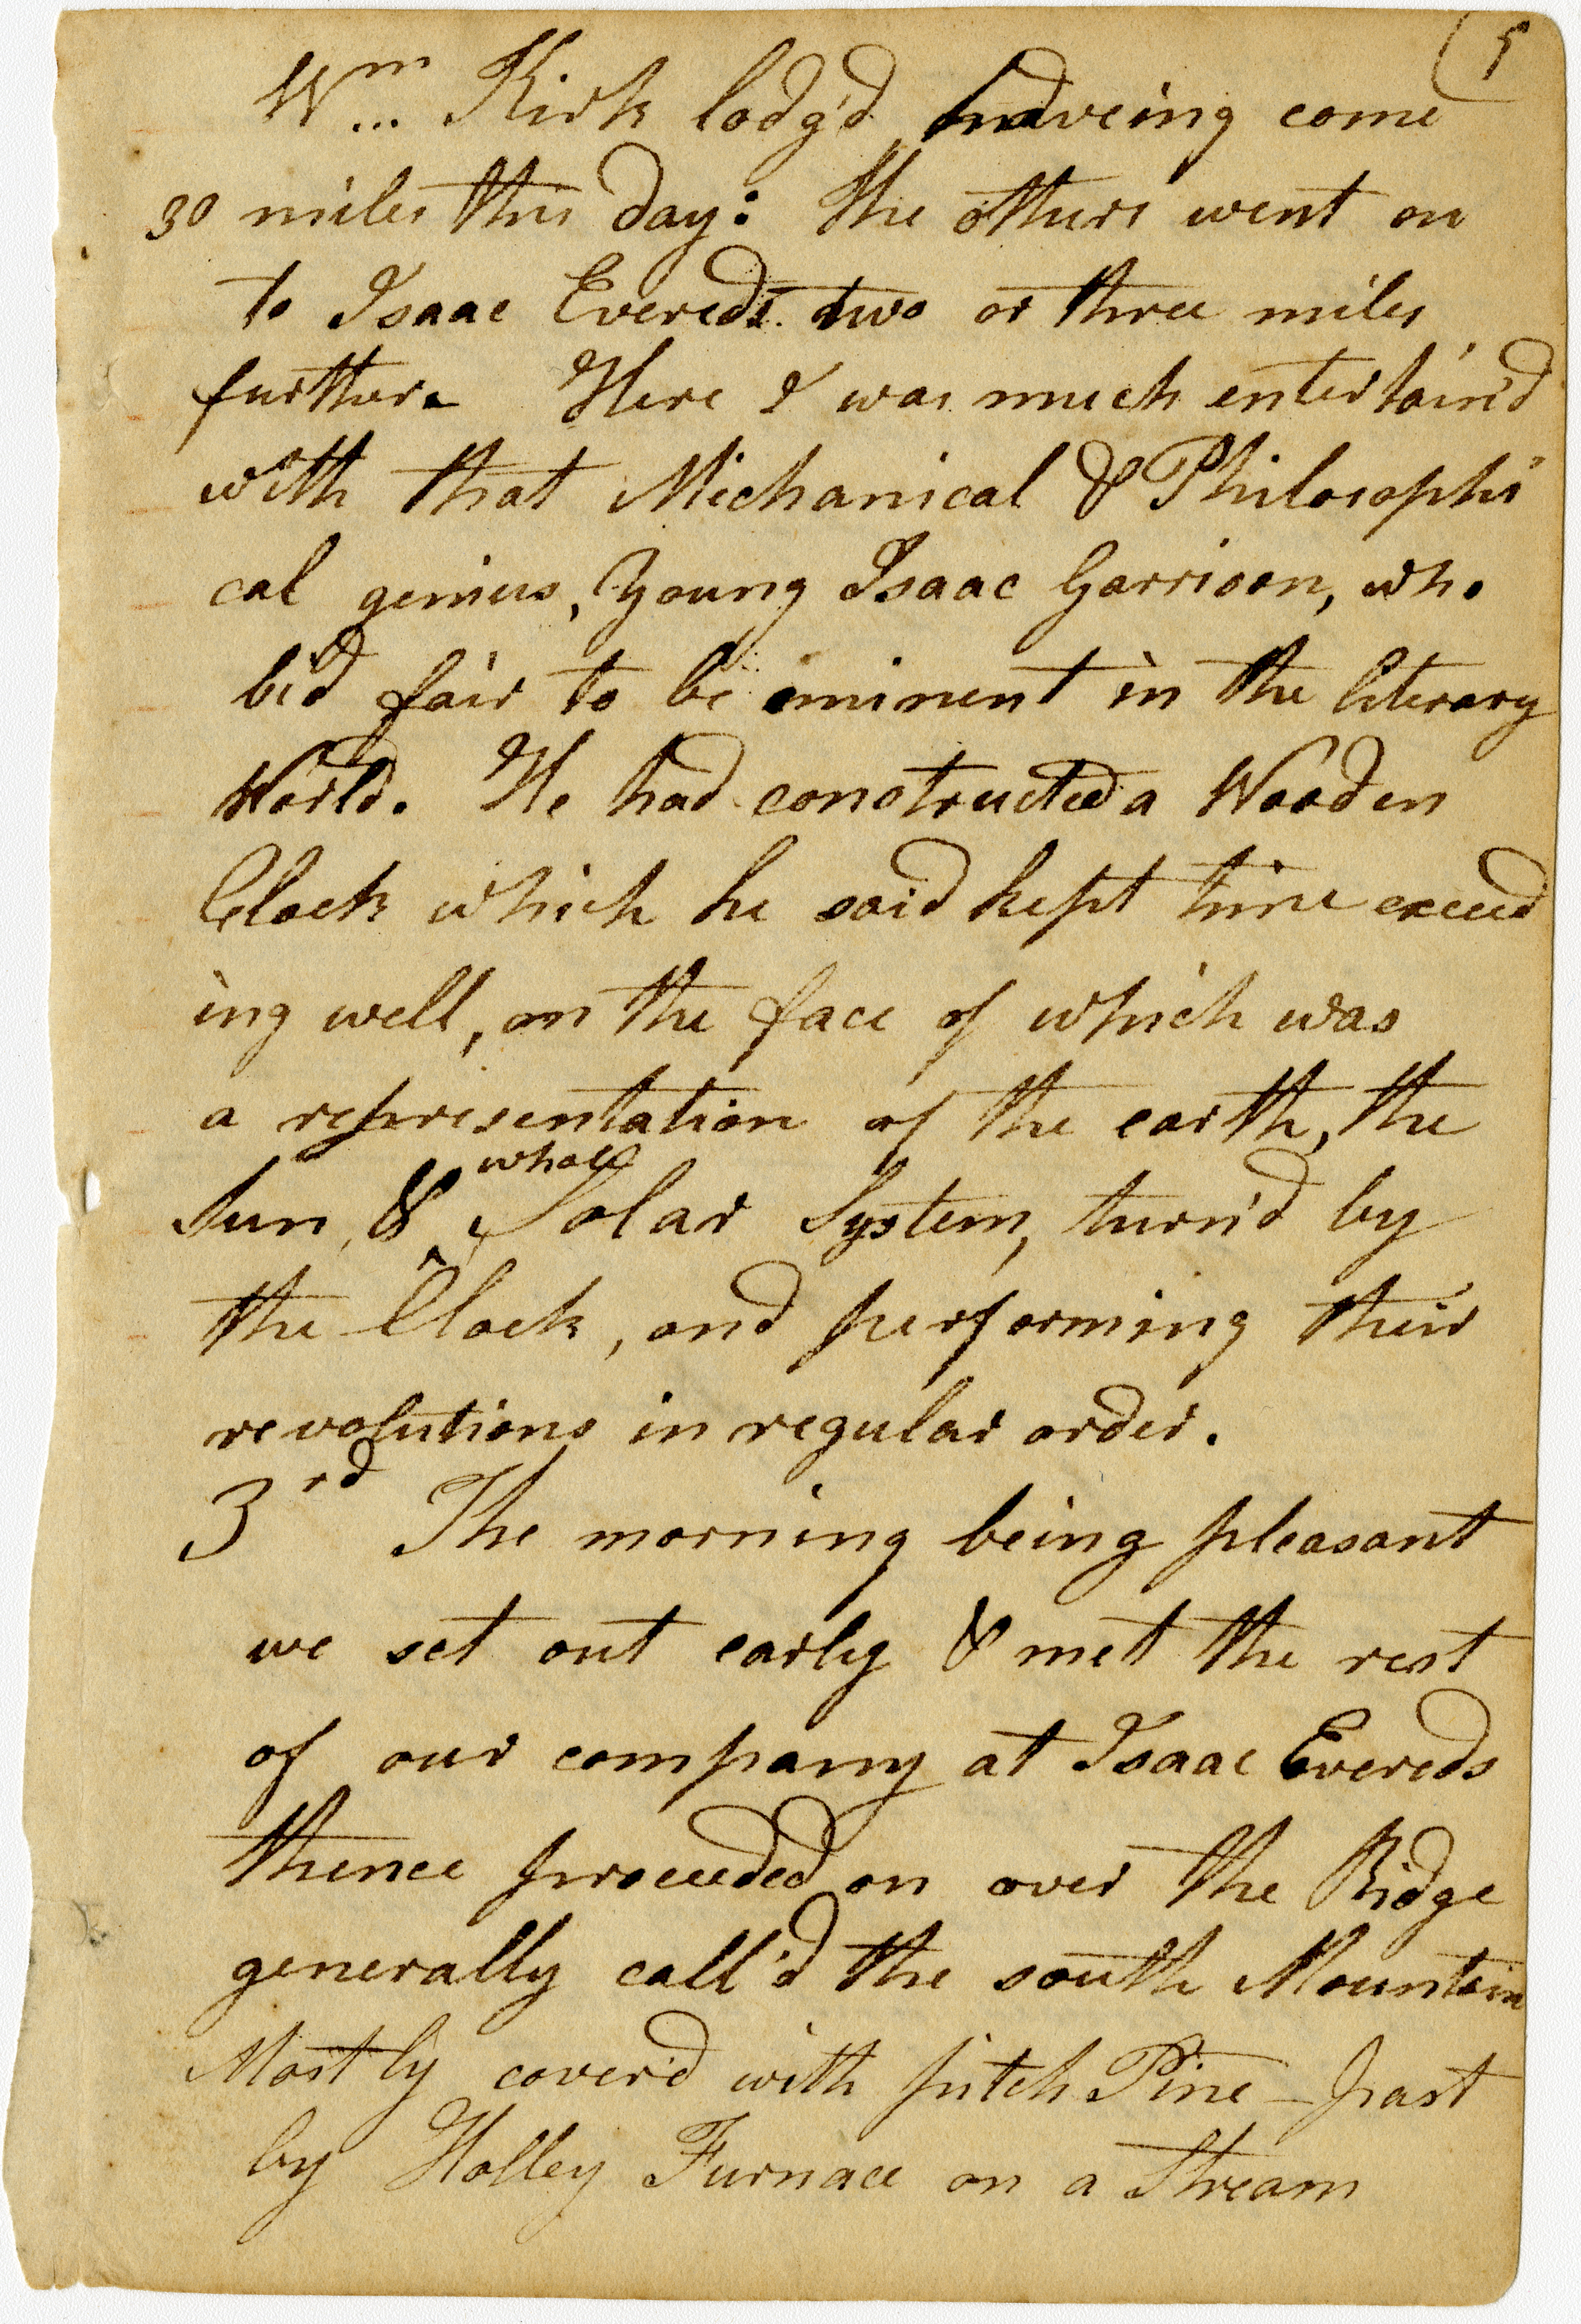 (5
Wm Kirk lodg'd haveing come
30 miles this day: the others went on
to IsaacEvereds two or three miles
further. Here I was much entertain'd
with that Mechanical & Philosophi
cal genius, Young Isaac Garrison, who
bid fair to be eminent in the literary
World. He had constructed a Wooden
Clock which he said kept time exceed
ing well, on the face of which was
a representation of the earth, the
whole
Sun, & Solar System, turn'd by
the Clock, and performing their
revolutions in regular order.
3rd The morning being pleasant
we set out early & met the rest
of our company at Isaac Evereds
thence proceeded on over the Ridge
generally call'd the south Mountain
Mostly cover'd with pitch Pine – past
by Holley Furnace on a Stream